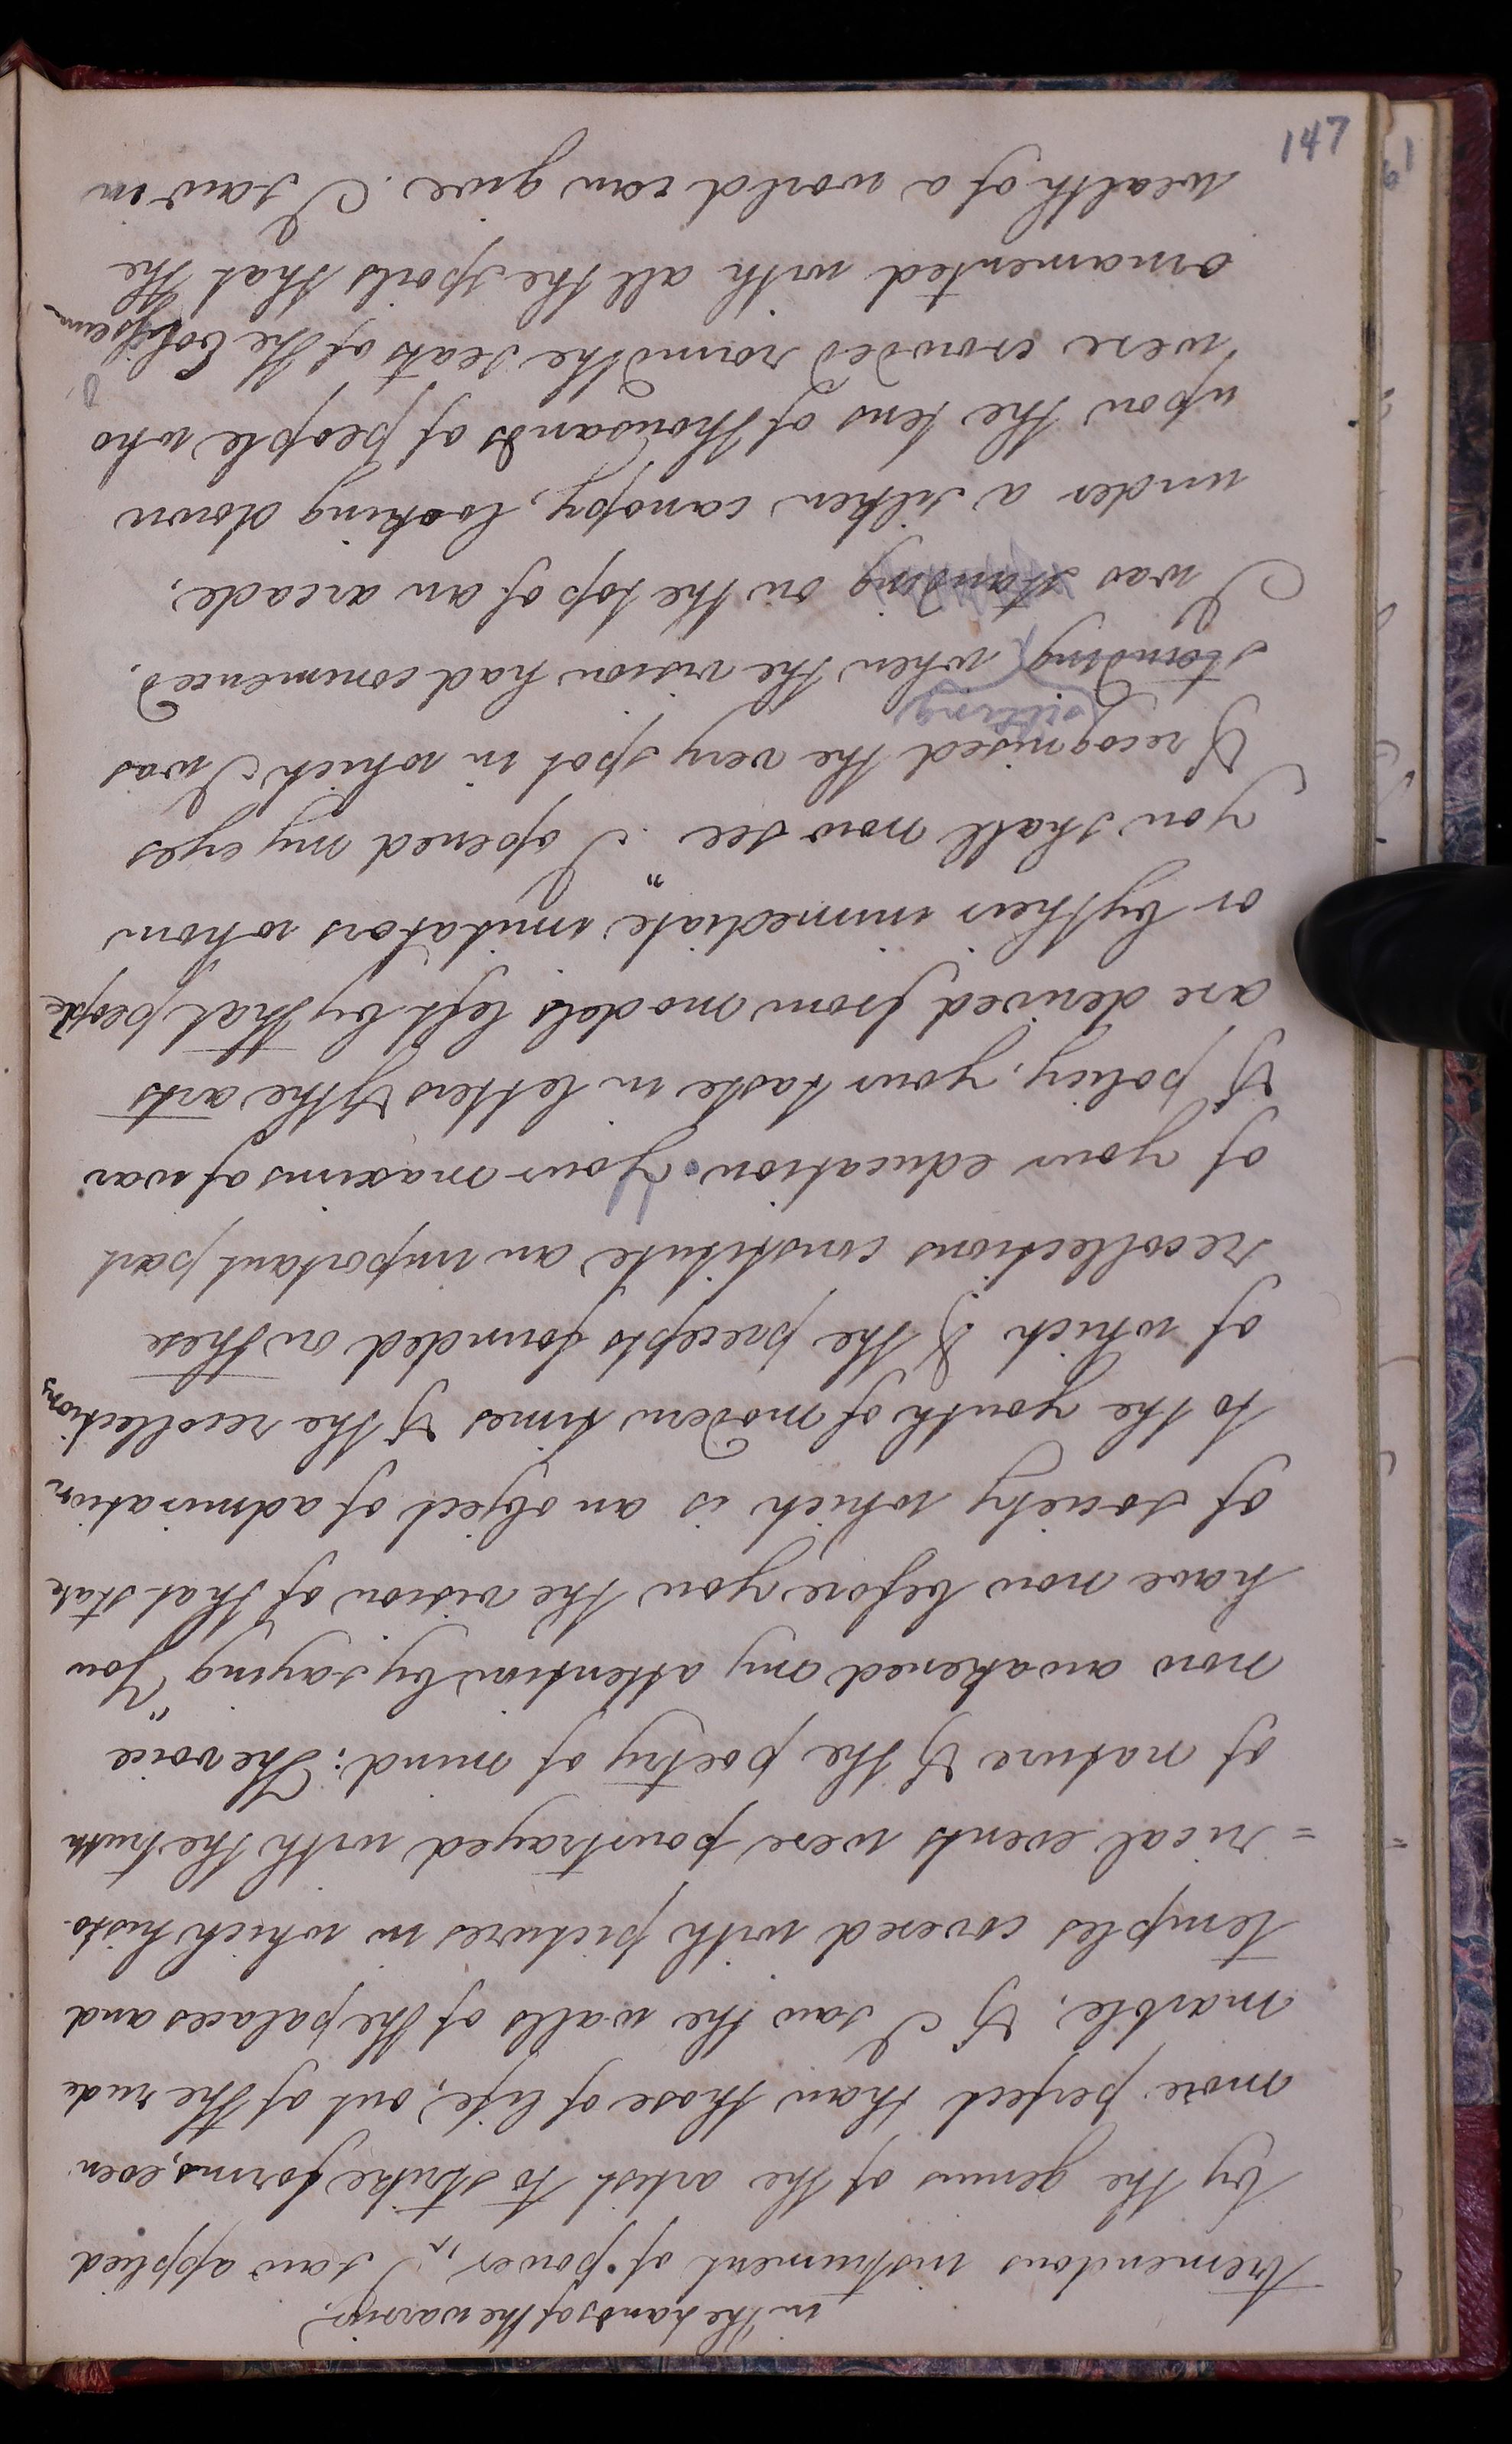 in the hands of the warrior,
tremendous instrument of power, I saw applied
by the genius of the artist to strike forms, even
more perfect than those of life, out of the rude
marble; & I saw the walls of the palaces and
temples covered with pictures in which histo-
=rical events were pourtrayed with the truth
of nature & the poetry of mind: The voice
now awakened my attention by saying "You
have now before you the vision of that state
of society which is an object of admiration
to the youth of modern times & the recollections
of which & the precepts founded on these
recollections constitute an important part
of your education. Your maxims of war
& policy, your taste in letters & the arts
are derived from models left by that people
or by their immediate imitators whom
you shall now see". I opened my eyes
& recognised the very spot in which I was
sitting
standing when the vision had commenced.
I was standing on the top of an arcade,
under a silken canopy, looking down
upon the tens of thousands of people who
were crowded round the seats of the Coliseum
ornamented with all the spoils that the
wealth of a world can give. I saw in
147